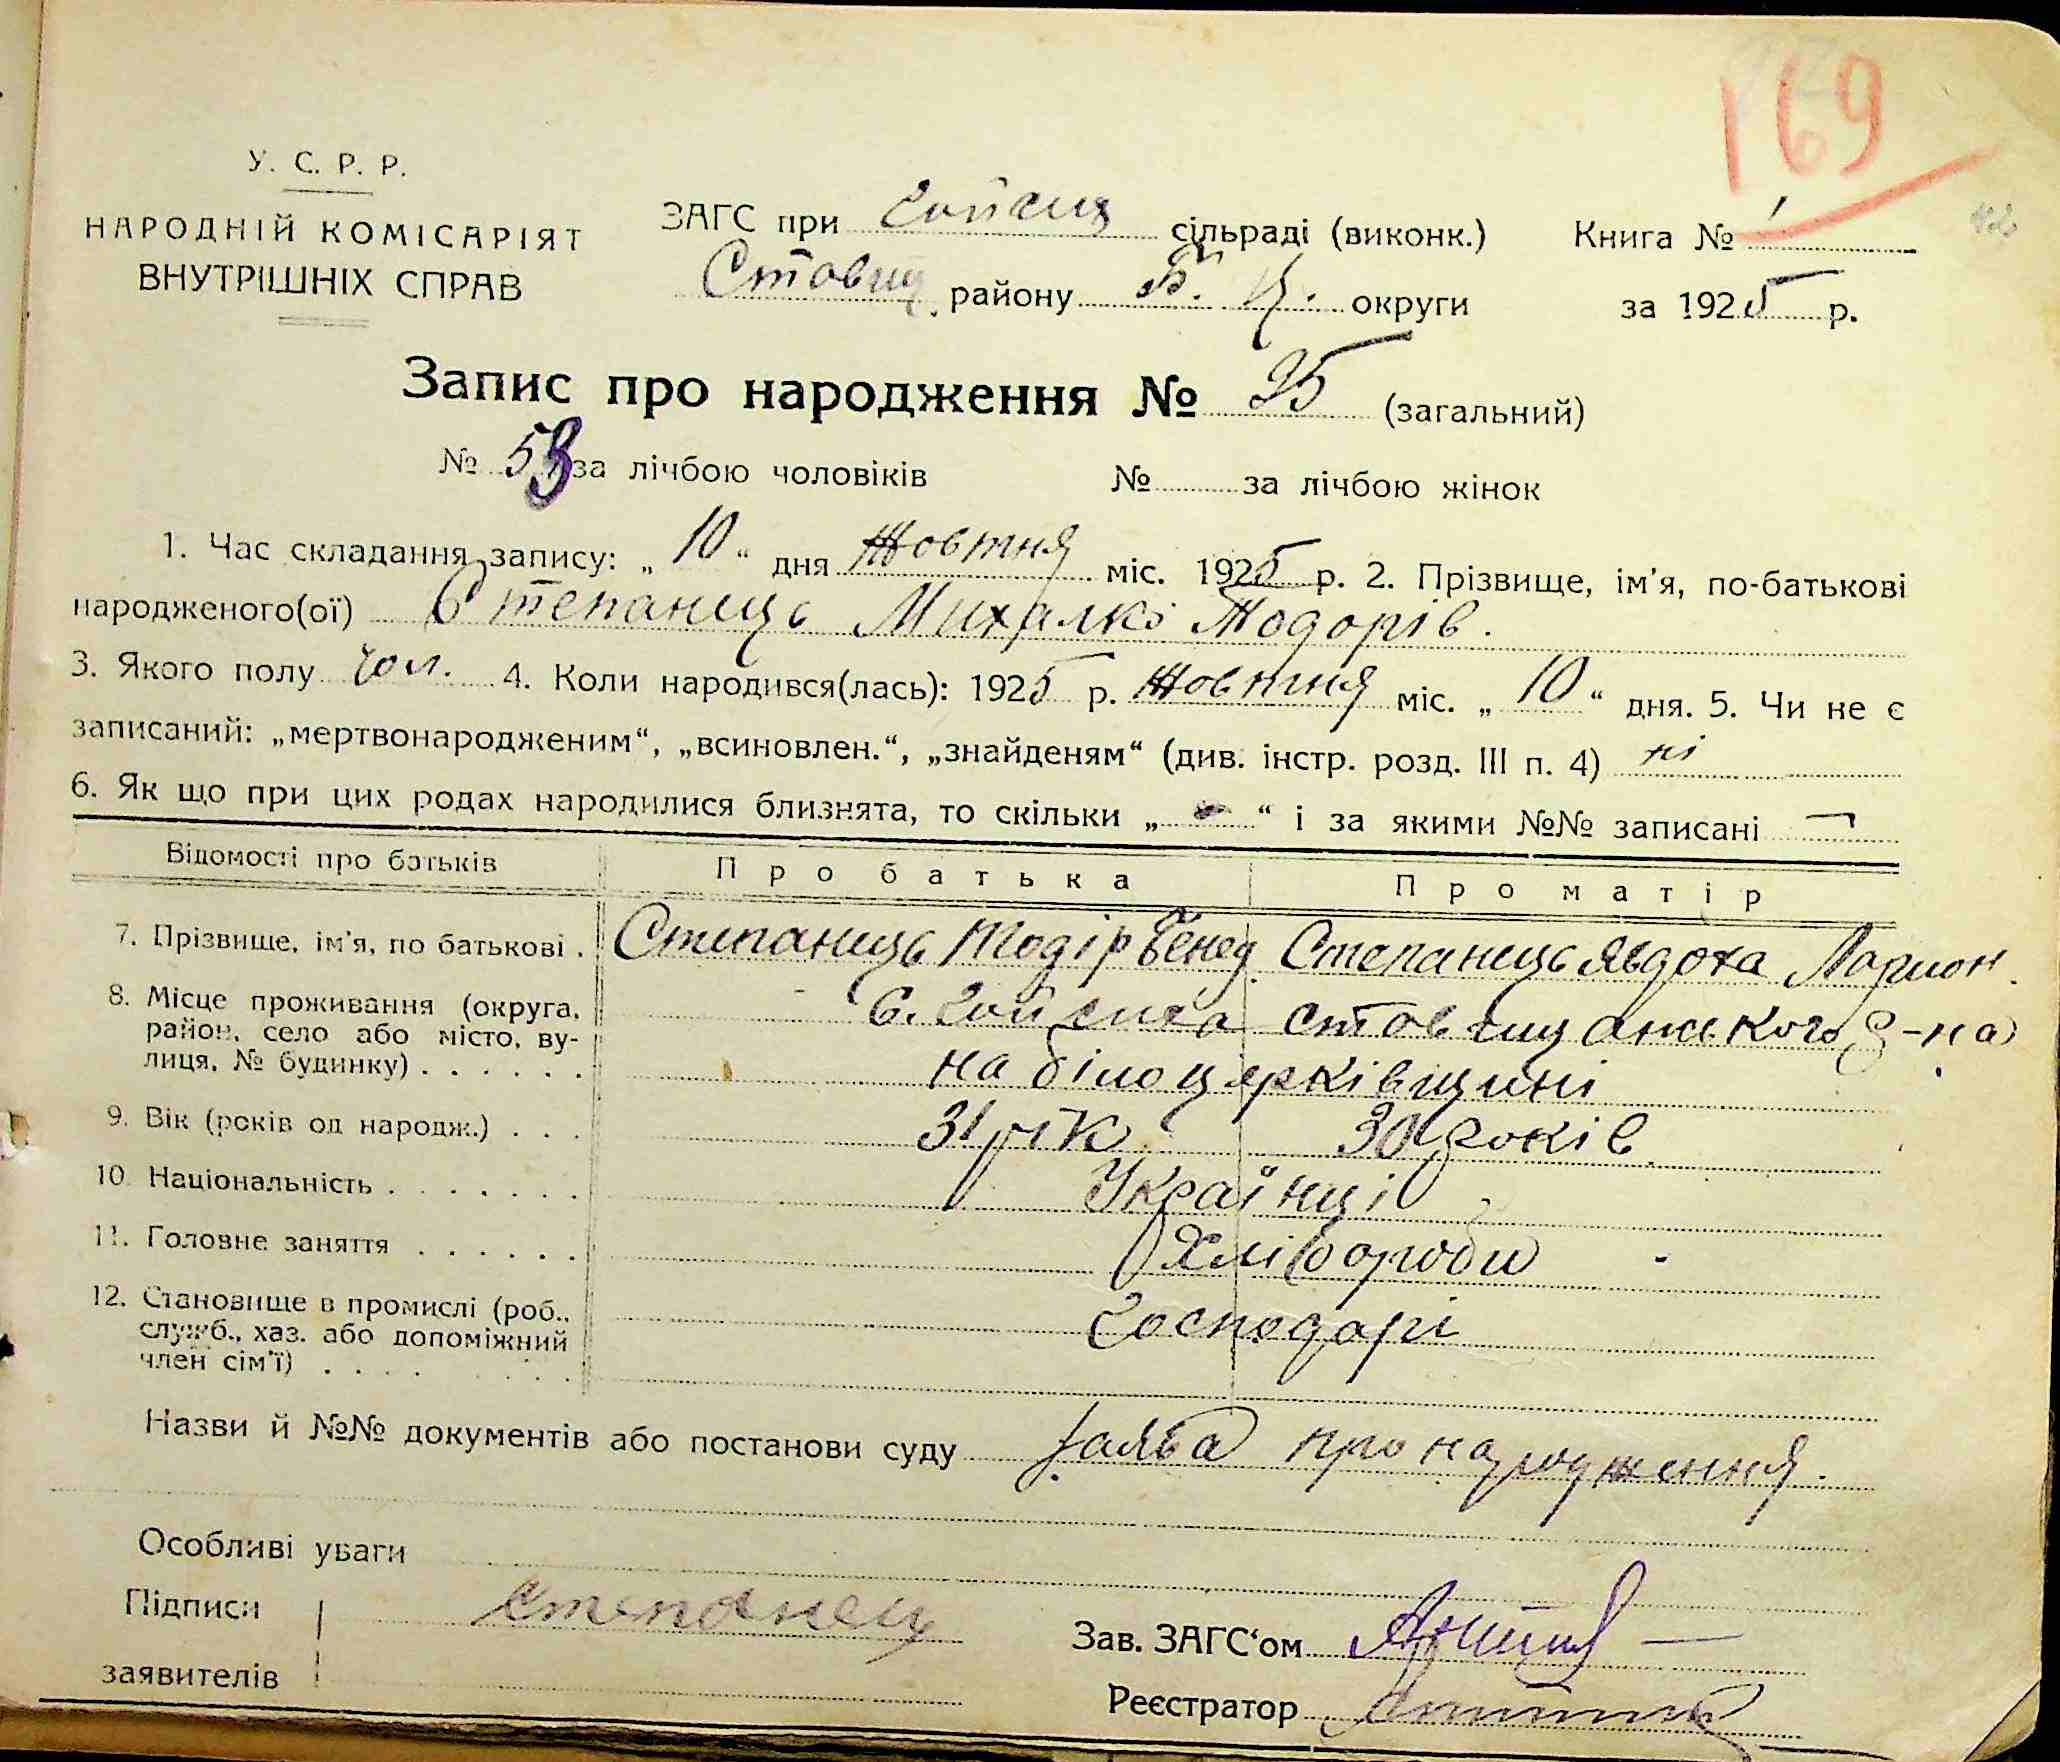 169
У. С. Р. Р.
НАРОДНІЙ КОМІСАРІЯТ
ВНУТРІШНІХ СПРАВ
ЗАГС при Гойсиц сільраді (виконк.) Книга № 1
Ставищ. району Б. Ц. округи за 1925 р.
Запис про народження № 95 (загальний)
№ 53 за лічбою чоловіків № за лічбою жінок
1. Час складання запису: „ 10 “ дня Жовтня міс. 1925 р. 2. Прізвище, ім'я, по-батькові
народженого(ої) Степанець Михалко Тодорів.
3. Якого полу чол. 4. Коли народився(лась): 1925 р. Жовтня міс. „ 10 “ дня. 5. Чи не є
записаний: „мертвонародженим“, „всиновлен.“, „знайденям“ (див. інстр. розд. III п. 4) ні
6. Як що при цих родах народилися близнята, то скільки „ - “ і за якими №№ записані
Відомості про батьків Про батька Про матір
7. Прізвище, ім'я, по батькові . Степанець Тодір Венед. Степанець Явдоха Ларион.
8. Місце проживання (округа, район, село або місто, вулиця, № будинку) . . . . . . С. Гойсиха Ставищанського р-на
на білоцерківщині
9. Вік (років од народж.) . . . 31 рік 30 років
10. Національність . . . . . . . Українці
11. Головне заняття . . . . . . Хлібороби
12. Становище в промислі (роб., служб., хаз. або допоміжний член сім'ї) . . . . Господарі
Назви й №№ документів або постанови суду заява про народження.
Особливі уваги
Підписи Степанец
заявителів
Зав. ЗАГС‘ом
Реєстратор